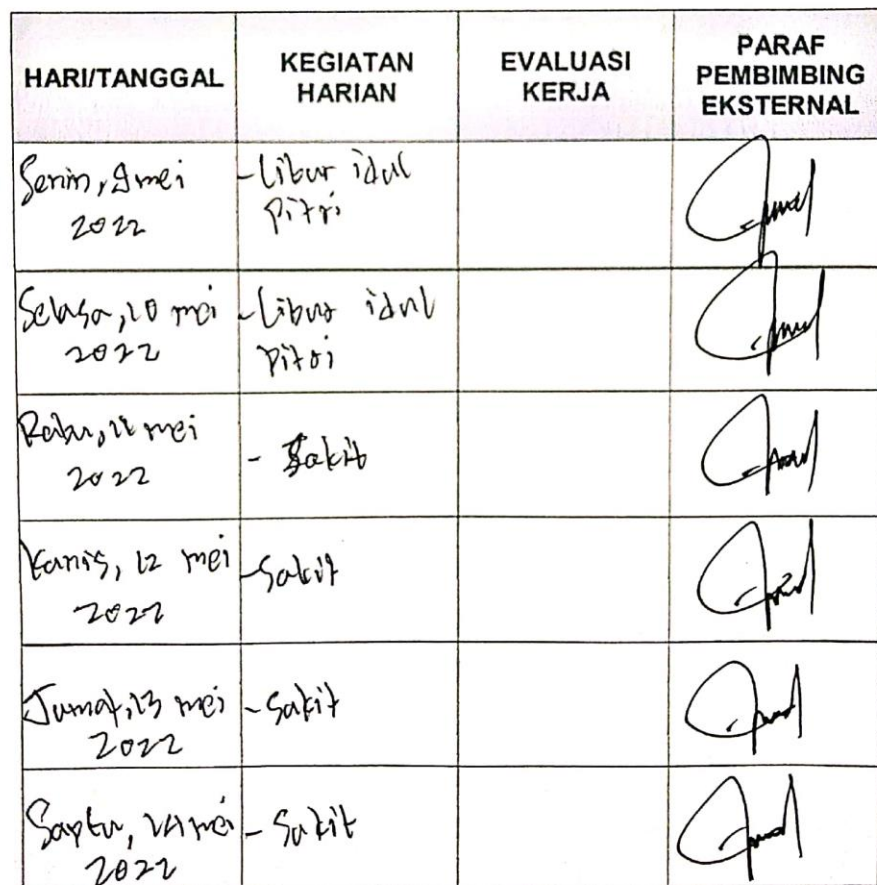 HARI/TANGGAL
KEGIATAN
HARIAN
EVALUASI
KERJA
PARAF
PEMBIMBING
EKSTERNAL
Senin, 9 mei
2022
- Libur idul
Pitri
Selasa, 10 mei
2022
- Libur idul
Pitri
Rabu, 11 mei
2022
- Sakit
Kamis, 12 mei
2022
- Sakit
Jumat, 13 mei
2022
- Sakit
Saptu, 14 mei
2022
- Sakit